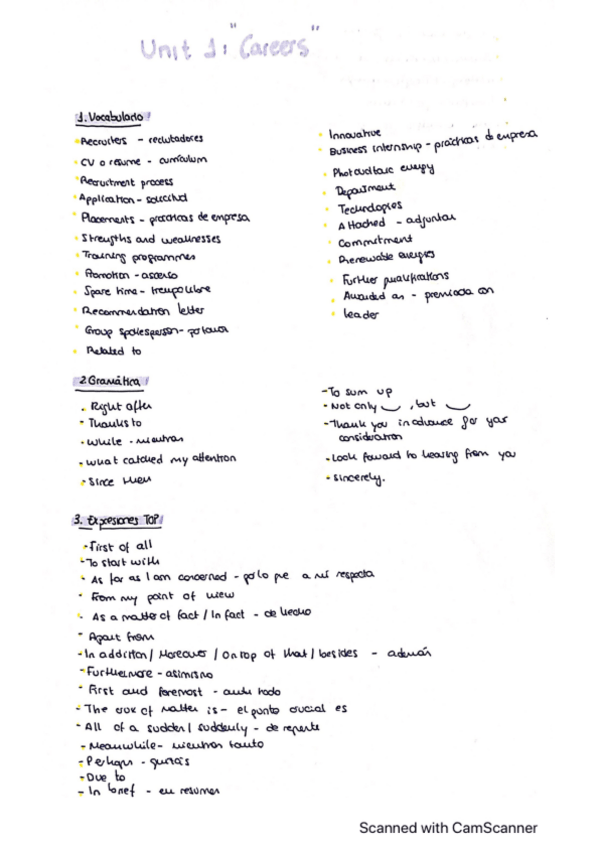 Unit 1: "Careers"
1. Vocabulario
Recruiters - reclutadores
CV o resume - currículum
Recruitment process
Application - solicitud
Placements - prácticas de empresa
Strengths and weaknesses
Training programmes
Promotion - ascenso
Spare time - tiempo libre
Recommendation letter
Group spokesperson - portavoz
Related to
Innovative
Business internship - prácticas de empresa
Photovoltaic energy
Department
Technologies
Attached - adjuntar
Commitment
Renewable energies
Further qualifications
Awarded as - premiada con
leader
2. Gramática
. Right after
- Thanks to
- While - mientras
- what catched my attention
- Since then
- To sum up
- Not only , but
- Thank you in advance for your
consideration
- Look foward to hearing from you
- sincerely.
3. Expresiones TOP
- First of all
- To start with
- As far as I am concerned - por lo que a mí respecta
- From my point of view
- As a matter of fact / In fact - de hecho
- Apart from
- In addition / Moreover / On top of that / besides - además
- Furthermore - asimismo
- First and foremost - ante todo
- The crux of matter is - el punto crucial es
- All of a sudden / suddenly - de repente
- Meanwhile - mientras tanto
- Perhaps - quizás
- Due to
- In brief - en resumen
Scanned with CamScanner